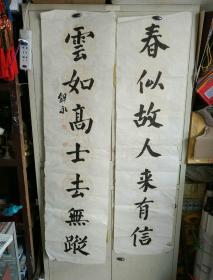 春似故人来有信
雲如高士去無蹤
錦永